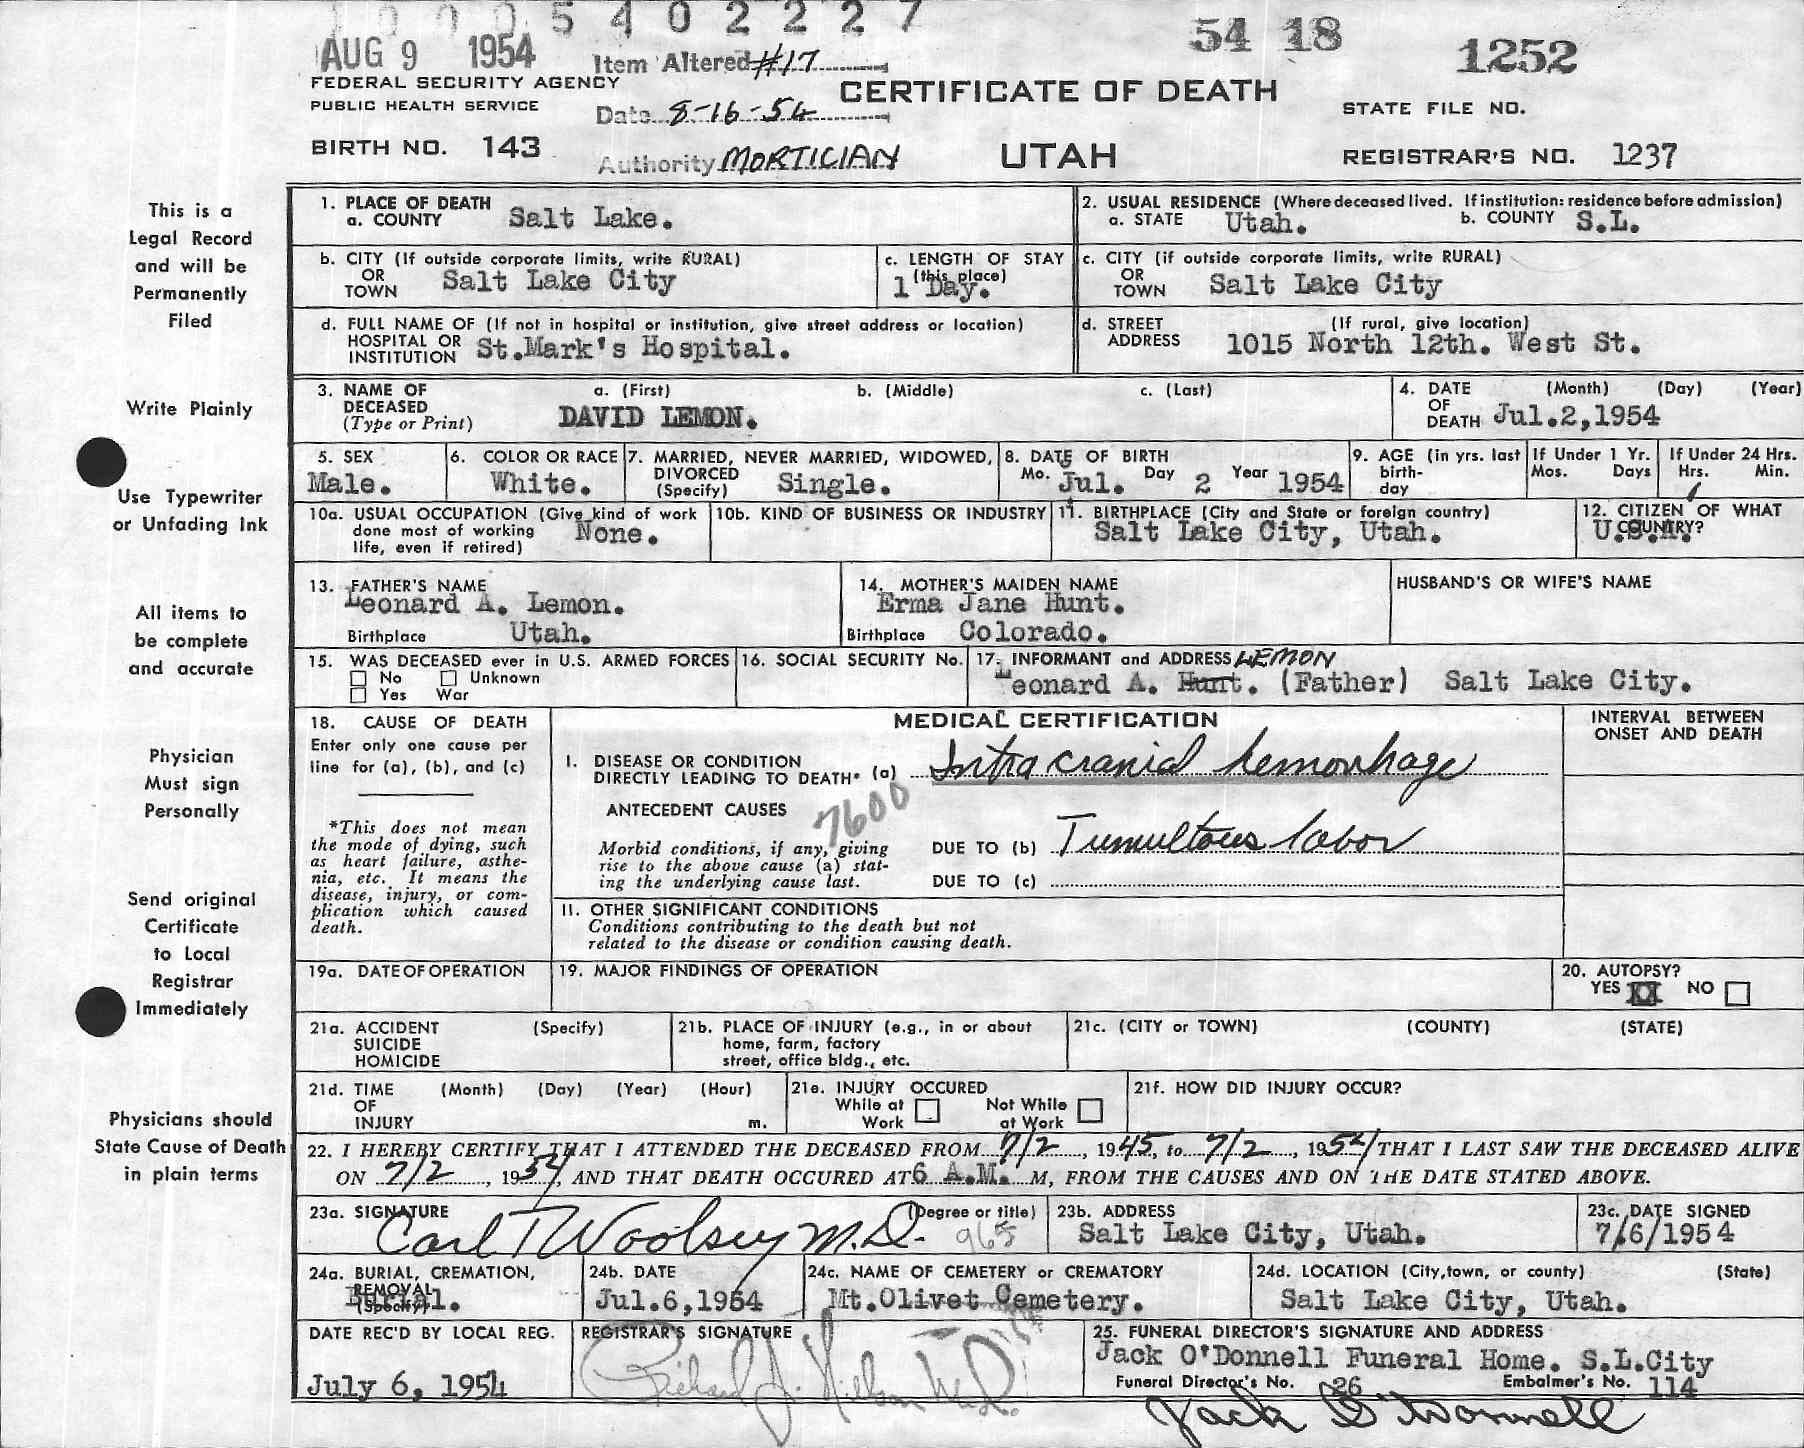 5 4 0 2 2 2 7
AUG 9 1954
Item Altered #17
54 18
1252
FEDERAL SECURITY AGENCY
PUBLIC HEALTH SERVICE
Date 8-16-54
CERTIFICATE OF DEATH
STATE FILE NO.
BIRTH NO. 143
Authority MORTICIAN
UTAH
REGISTRAR'S NO. 1237
This is a
Legal Record
and will be
Permanently
Filed
Write Plainly
Use Typewriter
or Unfading Ink
All items to
be complete
and accurate
Physician
Must sign
Personally
Send original
Certificate
to Local
Registrar
Immediately
Physicians should
State Cause of Death
in plain terms
1. PLACE OF DEATH
a. COUNTY Salt Lake.
2. USUAL RESIDENCE (Where deceased lived. If institution: residence before admission)
a. STATE Utah. b. COUNTY S.L.
b. CITY (If outside corporate limits, write RURAL)
OR
TOWN Salt Lake City
c. LENGTH OF STAY
(this place)
1 Day.
c. CITY (if outside corporate limits, write RURAL)
OR
TOWN Salt Lake City
d. FULL NAME OF (If not in hospital or institution, give street address or location)
HOSPITAL OR
INSTITUTION St.Mark's Hospital.
d. STREET (If rural, give location)
ADDRESS 1015 North 12th. West St.
3. NAME OF a. (First) b. (Middle) c. (Last)
DECEASED
(Type or Print) DAVID LEMON.
4. DATE (Month) (Day) (Year)
OF
DEATH Jul.2,1954
5. SEX
Male.
6. COLOR OR RACE
White.
7. MARRIED, NEVER MARRIED, WIDOWED,
DIVORCED
(Specify) Single.
8. DATE OF BIRTH
Mo. Jul. Day 2 Year 1954
9. AGE (in yrs. last
birth-
day
If Under 1 Yr.
Mos. Days
If Under 24 Hrs.
Hrs. Min.
1
10a. USUAL OCCUPATION (Give kind of work
done most of working
life, even if retired) None.
10b. KIND OF BUSINESS OR INDUSTRY
11. BIRTHPLACE (City and State or foreign country)
Salt Lake City, Utah.
12. CITIZEN OF WHAT
COUNTRY?
U.S.A.
13. FATHER'S NAME
Leonard A. Lemon.
Birthplace Utah.
14. MOTHER'S MAIDEN NAME
Erma Jane Hunt.
Birthplace Colorado.
HUSBAND'S OR WIFE'S NAME
15. WAS DECEASED ever in U.S. ARMED FORCES
No Unknown
Yes War
16. SOCIAL SECURITY No.
17. INFORMANT and ADDRESS LEMON
Leonard A. Hunt. (Father) Salt Lake City.
18. CAUSE OF DEATH
Enter only one cause per
line for (a), (b), and (c)
*This does not mean
the mode of dying, such
as heart failure, asthe-
nia, etc. It means the
disease, injury, or com-
plication which caused
death.
MEDICAL CERTIFICATION
INTERVAL BETWEEN
ONSET AND DEATH
I. DISEASE OR CONDITION
DIRECTLY LEADING TO DEATH* (a) Intra cranial hemorrhage
ANTECEDENT CAUSES
7600
Morbid conditions, if any, giving
rise to the above cause (a) stat-
ing the underlying cause last.
DUE TO (b) Tumultous labor
DUE TO (c)
II. OTHER SIGNIFICANT CONDITIONS
Conditions contributing to the death but not
related to the disease or condition causing death.
19a. DATE OF OPERATION
19. MAJOR FINDINGS OF OPERATION
20. AUTOPSY?
YES XX NO
21a. ACCIDENT (Specify)
SUICIDE
HOMICIDE
21b. PLACE OF INJURY (e.g., in or about
home, farm, factory
street, office bldg., etc.
21c. (CITY or TOWN) (COUNTY) (STATE)
21d. TIME (Month) (Day) (Year) (Hour)
OF
INJURY m.
21e. INJURY OCCURED
While at Not While
Work at Work
21f. HOW DID INJURY OCCUR?
22. I HEREBY CERTIFY THAT I ATTENDED THE DECEASED FROM 7/2, 1945, to 7/2, 1954 THAT I LAST SAW THE DECEASED ALIVE
ON 7/2, 1954, AND THAT DEATH OCCURED AT 6 A.M. M, FROM THE CAUSES AND ON THE DATE STATED ABOVE.
23a. SIGNATURE (Degree or title)
Carl T Woolsey M.D. 965
23b. ADDRESS
Salt Lake City, Utah.
23c. DATE SIGNED
7/6/1954
24a. BURIAL, CREMATION,
REMOVAL
(Specify)
Burial.
24b. DATE
Jul.6,1954
24c. NAME OF CEMETERY or CREMATORY
Mt.Olivet Cemetery.
24d. LOCATION (City,town, or county) (State)
Salt Lake City, Utah.
DATE REC'D BY LOCAL REG.
July 6, 1954
REGISTRAR'S SIGNATURE
Richard J. M.D.
25. FUNERAL DIRECTOR'S SIGNATURE AND ADDRESS
Jack O'Donnell Funeral Home. S.L.City
Funeral Director's No. 26 Embalmer's No. 114
Jack O'Donnell